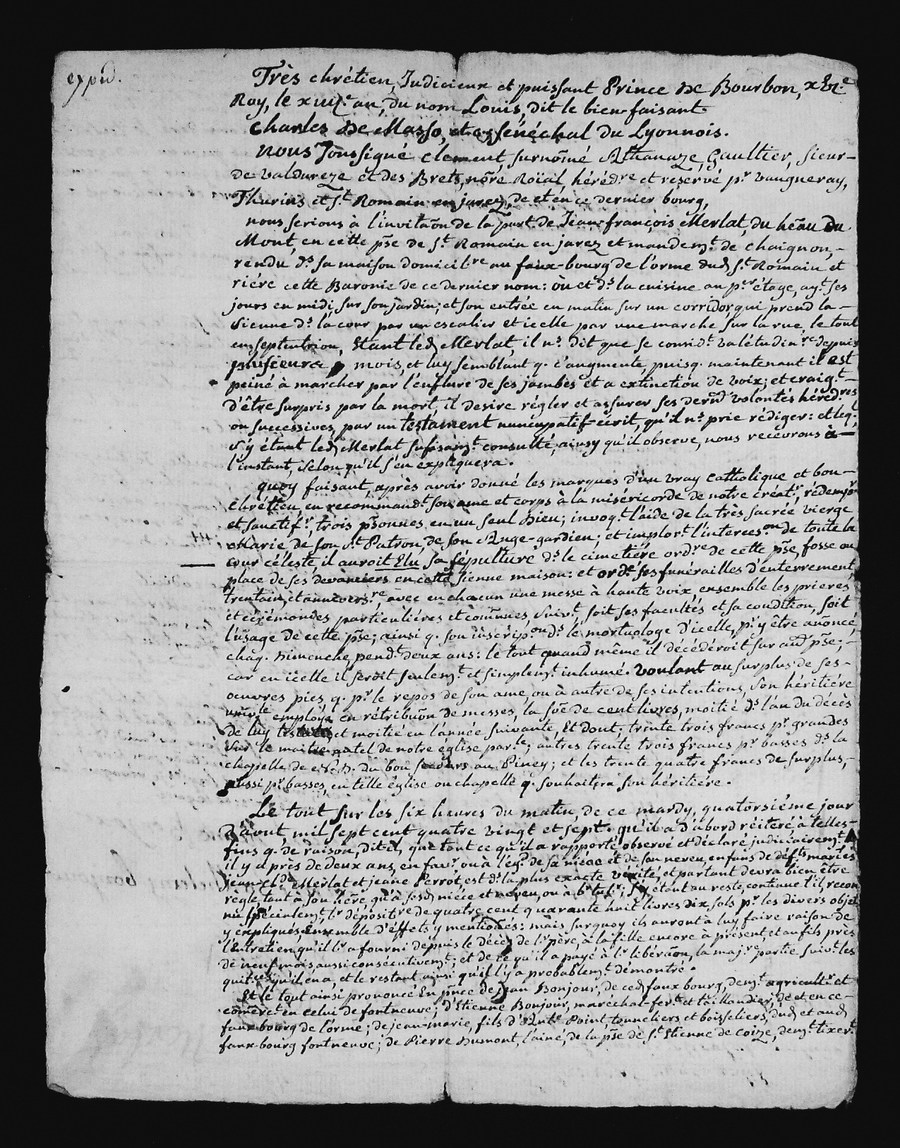 expéd.
Très chrétien, Judicieux et puissant Prince de Bourbon,
Roy, le xiiij.e an, du nom Louis, dit le bien-faisant.
Charles de Masso, Sénéchal du Lyonnois.
Nous soussigné Clement surnomé Athanaze, Gaultier, Sieur
de Valdureze et des Brets, no.re Roïal, hérédre et reservé pr. vaugneray,
Thurins et St. Romain en jarez, de et en ce dernier bourg,
nous serions à l'invitãon de la part de Jean-françois Merlat, du hẽau du
Mont, en cette pse de St. Romain en jarez et mandemt. de chaignon,
rendu ds. sa maison domicilre au faux-bourg de l'orme dud. St. Romain et
riére cette Baronie de ce dernier nom: ou et ds. la cuisine au pr. étage, ayt. ses
jours en midi, sur son jardin; et son entrée en matin sur un corridor qui prend la
sienne ds. la cour par un escalier et icelle par une marche sur la rue, le tout
en septentrion, Etant led. Merlat, il ns. dit que se considt. valétudinre depuis
plusieurs mois, et luy semblant q. ç'augmente, puisq. maintenant il est
peiné à marcher par l'enflure de ses jambes et a extinction de voix; et craigt.
d'être surpris par la mort, il desire régler et assurer ses dernes volontés hérédres
ou successives, par un testament nuncupatif-écrit, qu'il ns. prie rédiger: et leql.
s'y étant led. Merlat sufisamt. consulté, ainsy qu'il observe, nous recevrons à
l'instant, selon qu'il s'en expliquera.
quoy faisant, après avoir donné les marques d'un vray Catholique et bon
chrétien en recommandt. son ame et corps à la miséricorde de notre créatr. rédempr.
et sanctifr. trois psonnes en un seul Dieu; invoqt. l'aide de la très sacrée vierge
Marie de son St. Patron, de son Ange-gardien; et implort. l'intercesson de toute la
cour céleste, il auroit Elu sa sépulture ds. le cimetiére ordre de cette pse, fosse ou
place de ses devanciers en cette sienne maison: et ordt. ses funérailles d'enterrement,
trentain, et anniversre, avec en chacun une messe à haute voix, ensemble les prieres
et cérémonies particulieres et comunes, suivt. soit ses facultés et sa condition, soit
l'usage de cette pse; ainsi q. son inscripon ds. le mortuologe d'icelle, pr. y être anoncé
chaq. Dimenche, pendt. deux ans: le tout quand même il décéderoit sur autre pse;
car en icelle il seroit seulemt. et simplemt. inhumé. Voulant au surplus de ses
oeuvres pies, q. pr. le repos de son ame, ou à autre de ses intentions, Son héritiére
employe en rétribuõn de messes, la soẽ de cent livres, moitié ds. l'an du décès
de luy et moitié en l'année suivante, Et dont, trente trois francs pr. grandes
sur le maitre-autel de notre église parle; autres trente trois francs pr. basses ds. la
chapelle de N. D. du bon secours au Piney; et les trente quatre francs de surplus,
aussi pr. basses, en telle église ou chapelle q. souhaitera son héritière.
Le tout sur les six heures du matin, de ce mardy, quatorsiéme jour
d'aout mil sept cent quatre vingt et sept. qu'il a d'abord réitéré à telles
fins q. de raison, dit-il, que tout ce qu'il a rapporté, observé et déclaré judiciairemt.
il y a près de deux ans, en favr. ou à l'égd. de sa niéce et de son neveu, enfans de défts. mariés
jean Merlat et jeane Perrot, est ds. la plus exacte vérité, et partant devra bien être
regle, tant à son hére, qu'à sesd. niéce et neveu, ou à tel; S'y étant au reste, continue t'il, recon
nu spécialemt. dépositre de quatre cent quarante huit livres dix sols pr. les divers objets
y expliqués, Ensemble d'éffets y mentionés: mais sur quoy ils auront à luy faire raison de
l'entretien qu'il lr. a fourni depuis le décès de lr. pére, à la fille encore à présent, et au fils près
de neuf mois aussi consécutivemt.; et de ce qu'il a payé à lr. libéraõn, la majre partie suivt. les
quitces qu'il en a, et le restant ainsi qu'il l'y a probablemt. démontré.
Et le tout ainsi prononcé En pnce de Jean Bonjour, de ced. faux bourg, demt. agricultr. et
comerct. en celui de fontneuve; d'Etienne Bonjour, maréchal-fert. et taillandier, de et en ce
faux-bourg de l'orme; de jean-marie, fils d'Ante. Point, tonneliers et boisseliers, dud. et aud.
faux-bourg fontneuve; de Pierre Dumont, l'aîné, de la pse de St. Etienne de Coize, demt. tixert.